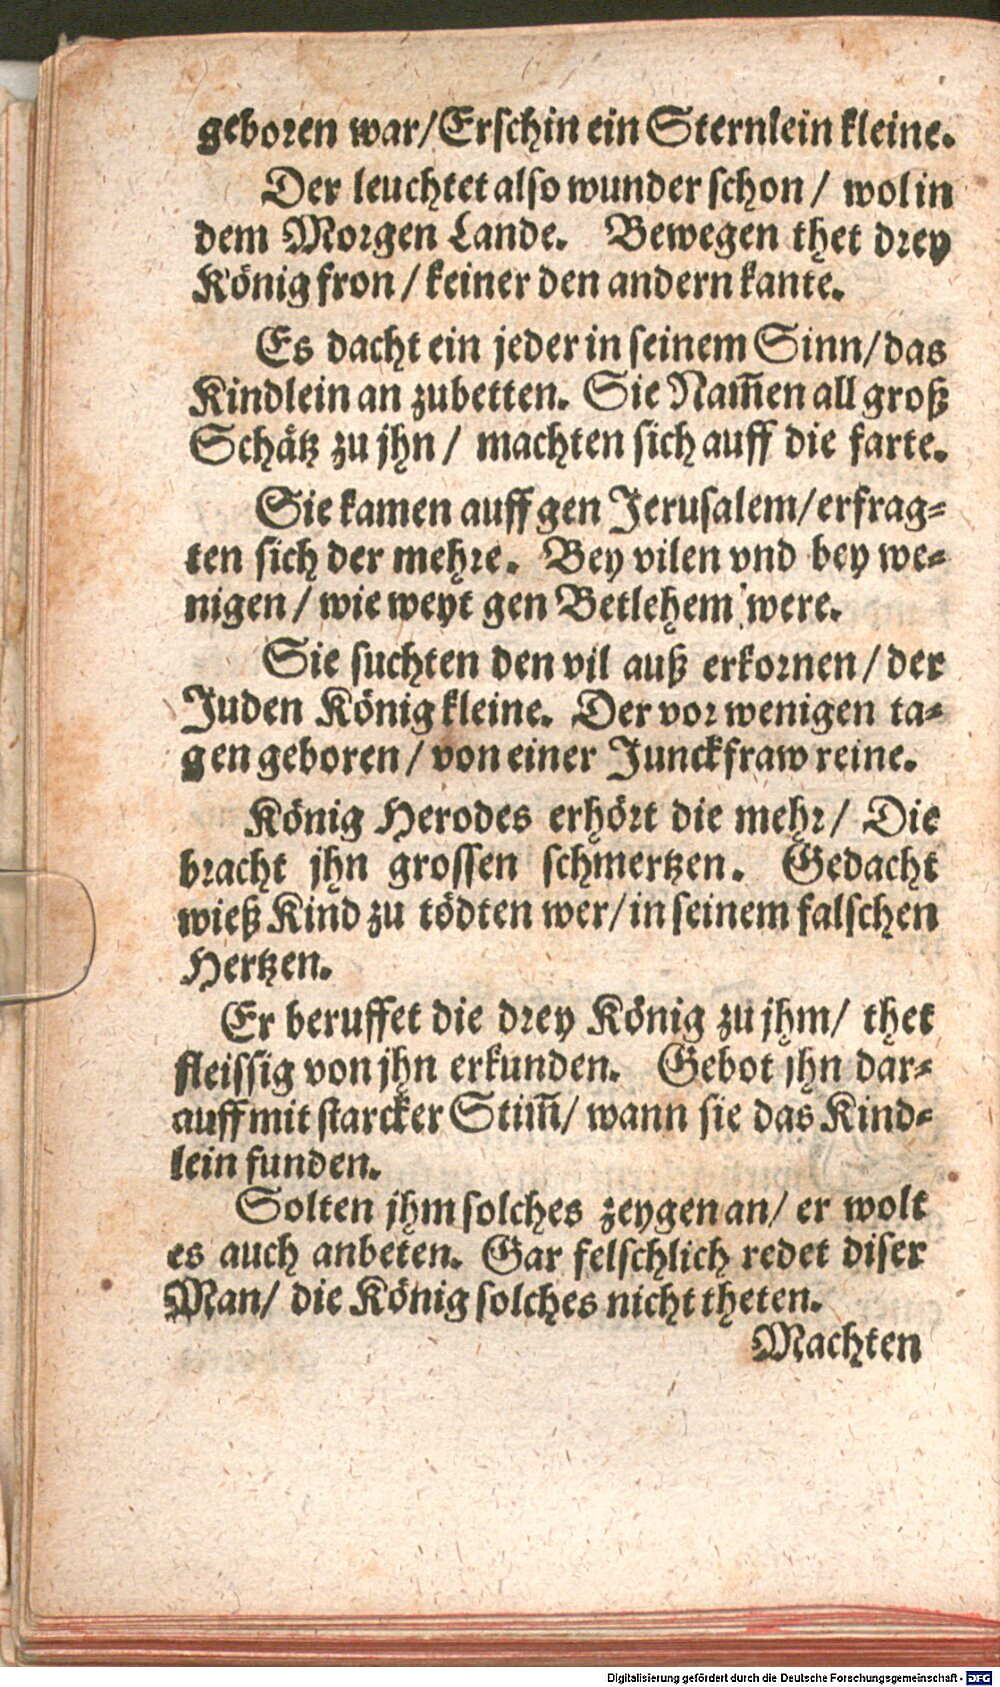 geboren war/ Erschin ein Sternlein kleine.
Der leuchtet also wunder schon/ wol in
dem Morgen Lande. Bewegen thet drey
König fron/ keiner den andern kante.
Es dacht ein jeder in seinem Sinn/ das
Kindlein an zubetten. Sie Nam̃en all groß
Schätz zu jhn/ machten sich auff die farte.
Sie kamen auff gen Jerusalem/ erfrag-
ten sich der mehre. Bey vilen vnd bey we-
nigen/ wie weyt gen Betlehem were.
Sie suchten den vil auß erkornen/ der
Juden König kleine. Der vor wenigen ta-
gen geboren/ von einer Junckfraw reine.
König Herodes erhört die mehr/ Die
bracht jhn grossen schmertzen. Gedacht
wieß Kind zu tödten wer/ in seinem falschen
Hertzen.
Er beruffet die drey König zu jhm/ thet
fleissig von jhn erkunden. Gebot jhn dar-
auff mit starcker Stim̃/ wann sie das Kind-
lein funden.
Solten jhm solches zeygen an/ er wolt
es auch anbeten. Gar felschlich redet diser
Man/ die König solches nicht theten.
Machten
Digitalisierung gefördert durch die Deutsche Forschungsgemeinschaft - DFG